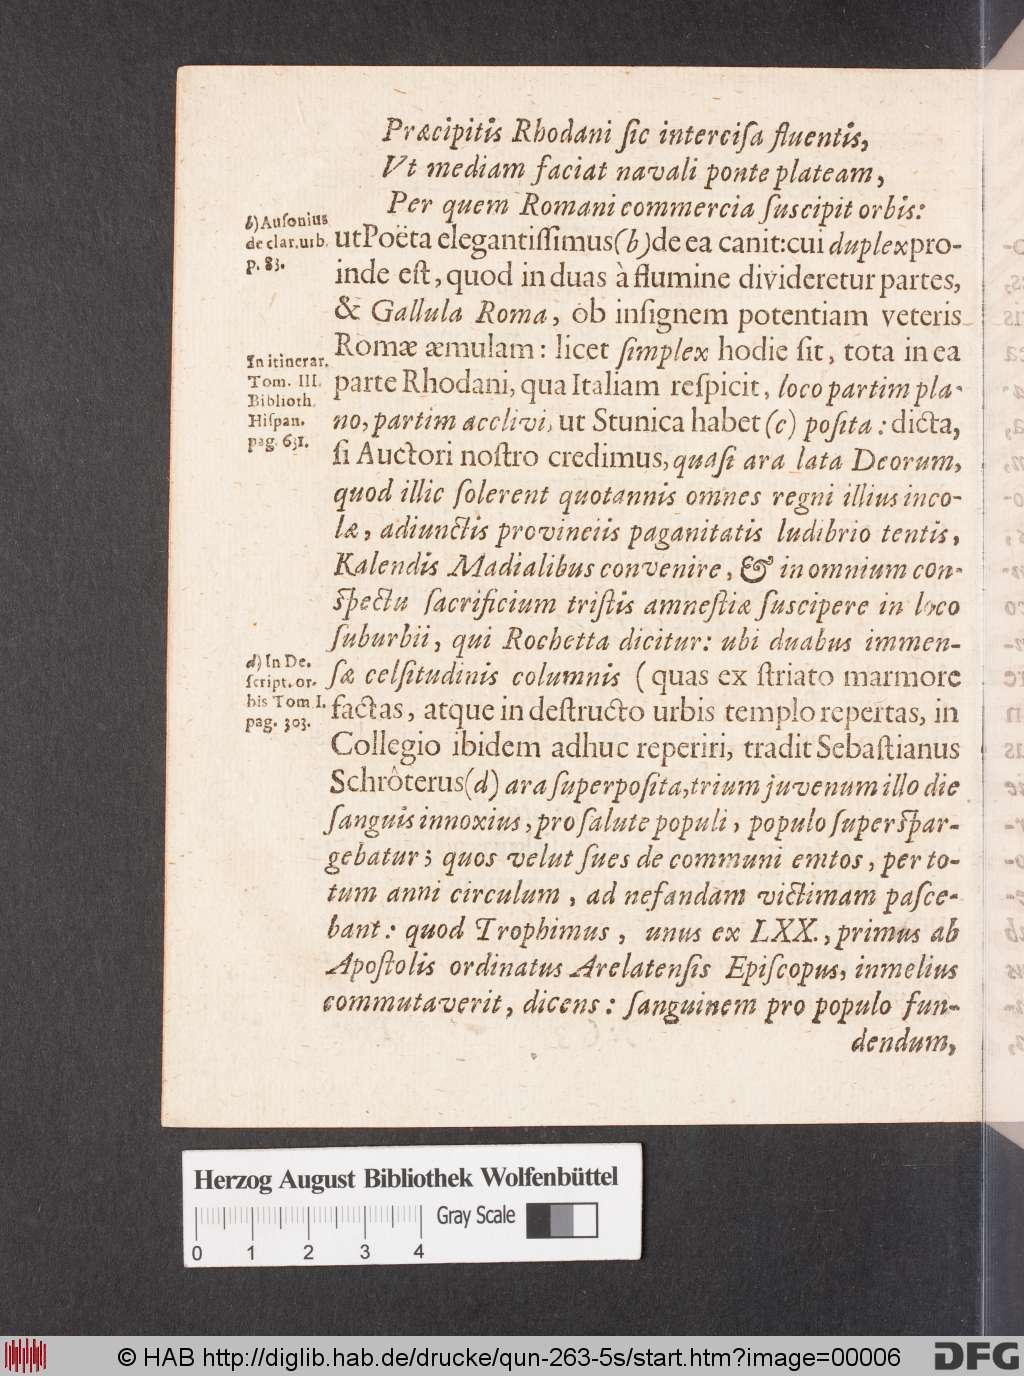 Præcipitis Rhodani ſic interciſa fluentis,
Vt mediam faciat navali ponte plateam,
Per quem Romani commercia ſuscipit orbis:
b) Auſonius
de clar. urb.
p. 83.
ut Poëta elegantiſſimus (b) de ea canit: cui duplex pro-
inde eſt, quod in duas à flumine divideretur partes,
& Gallula Roma, ob inſignem potentiam veteris
Romæ æmulam: licet ſimplex hodie ſit, tota in ea
In itinerar.
Tom. III.
Biblioth.
Hiſpan.
pag. 631.
parte Rhodani, qua Italiam reſpicit, loco partim pla-
no, partim acclivi, ut Stunica habet (c) poſita: dicta,
ſi Auctori noſtro credimus, quaſi ara lata Deorum,
quod illic ſolerent quotannis omnes regni illius inco-
læ, adiunctis provineiis paganitatis ludibrio tentis,
Kalendis Madialibus convenire, & in omnium con-
ſpectu ſacrificium triſtis amneſtiæ ſuscipere in loco
ſuburbii, qui Rochetta dicitur: ubi duabus immen-
d) In De-
ſcript. or-
bis Tom I.
pag. 303.
ſæ celſitudinis columnis (quas ex ſtriato marmore
factas, atque in deſtructo urbis templo repertas, in
Collegio ibidem adhuc reperiri, tradit Sebaſtianus
Schrôterus (d) ara ſuperpoſita, trium juvenum illo die
ſanguis innoxius, pro ſalute populi, populo ſuperſpar-
gebatur; quos velut ſues de communi emtos, per to-
tum anni circulum, ad nefandam victimam paſce-
bant: quod Trophimus, unus ex LXX., primus ab
Apoſtolis ordinatus Arelatenſis Epiſcopus, in melius
commutaverit, dicens: ſanguinem pro populo fun-
dendum,
Herzog August Bibliothek Wolfenbüttel
Gray Scale
0 1 2 3 4
© HAB http://diglib.hab.de/drucke/qun-263-5s/start.htm?image=00006
DFG